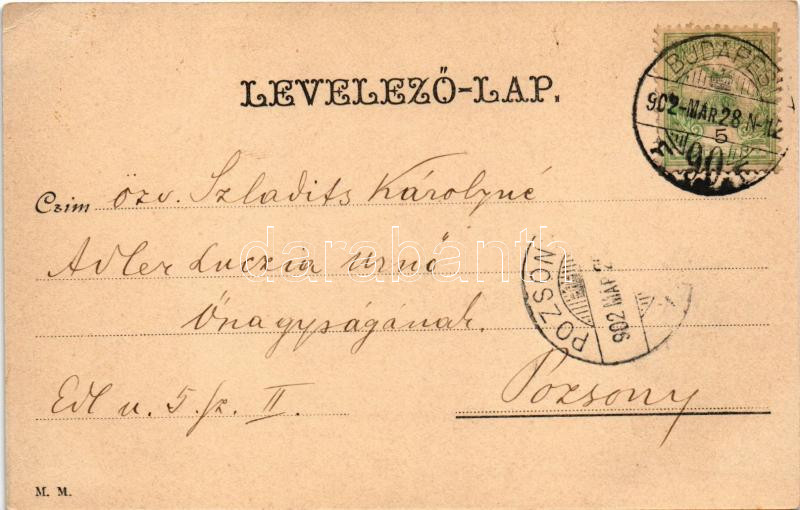 LEVELEZŐ-LAP.
BUDAPEST
902-MÁR 28 N-12
5
90
Czim özv. Szladits Károlyné
darabanth
Adler Luczia urnő
Őnagyságának.
POZSONY
902 MAR
Edl u. 5. sz. II.
Pozsony
M. M.